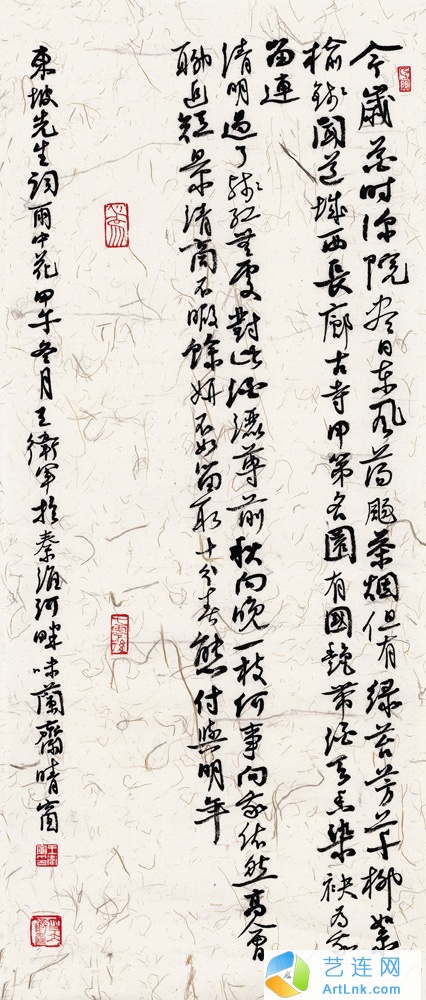 今歲花时深院尽日东风荡飏茶烟但有绿苔芳草柳絮
榆錢闻道城西長廊古寺甲第名園有國艷带酒天香染袂为我
留連
清明過了残红無處對此泪灑尊前秋向晚一枝何事向我依然高會
聊追短景清商不暇餘妍不如留取十分春態付與明年
東坡先生詞雨中花甲午冬月王衛軍於秦淮河畔味蘭齋晴窗
艺连网
ArtLnk.com